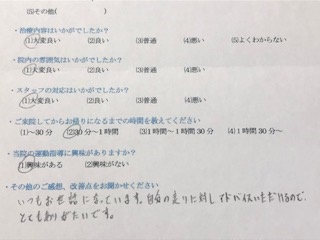 (5)その他(　　　　　)
・治療内容はいかがでしたか?
(1)大変良い　(2)良い　(3)普通　(4)悪い　(5)よくわからない
・院内の雰囲気はいかがでしたか?
(1)大変良い　(2)良い　(3)普通　(4)悪い
・スタッフの対応はいかがでしたか?
(1)大変良い　(2)良い　(3)普通　(4)悪い
・ご来院してからお帰りになるまでの時間を教えてください
(1)～30分　(2)30分～1時間　(3)1時間～1時間30分　(4)1時間30分～
・当院の運動指導に興味がありますか?
(1)興味がある　(2)興味がない
・その他のご感想、改善点をお聞かせください
いつもお世話になっています。自分の走りに対しアドバイスいただけるので、
とてもありがたいです。